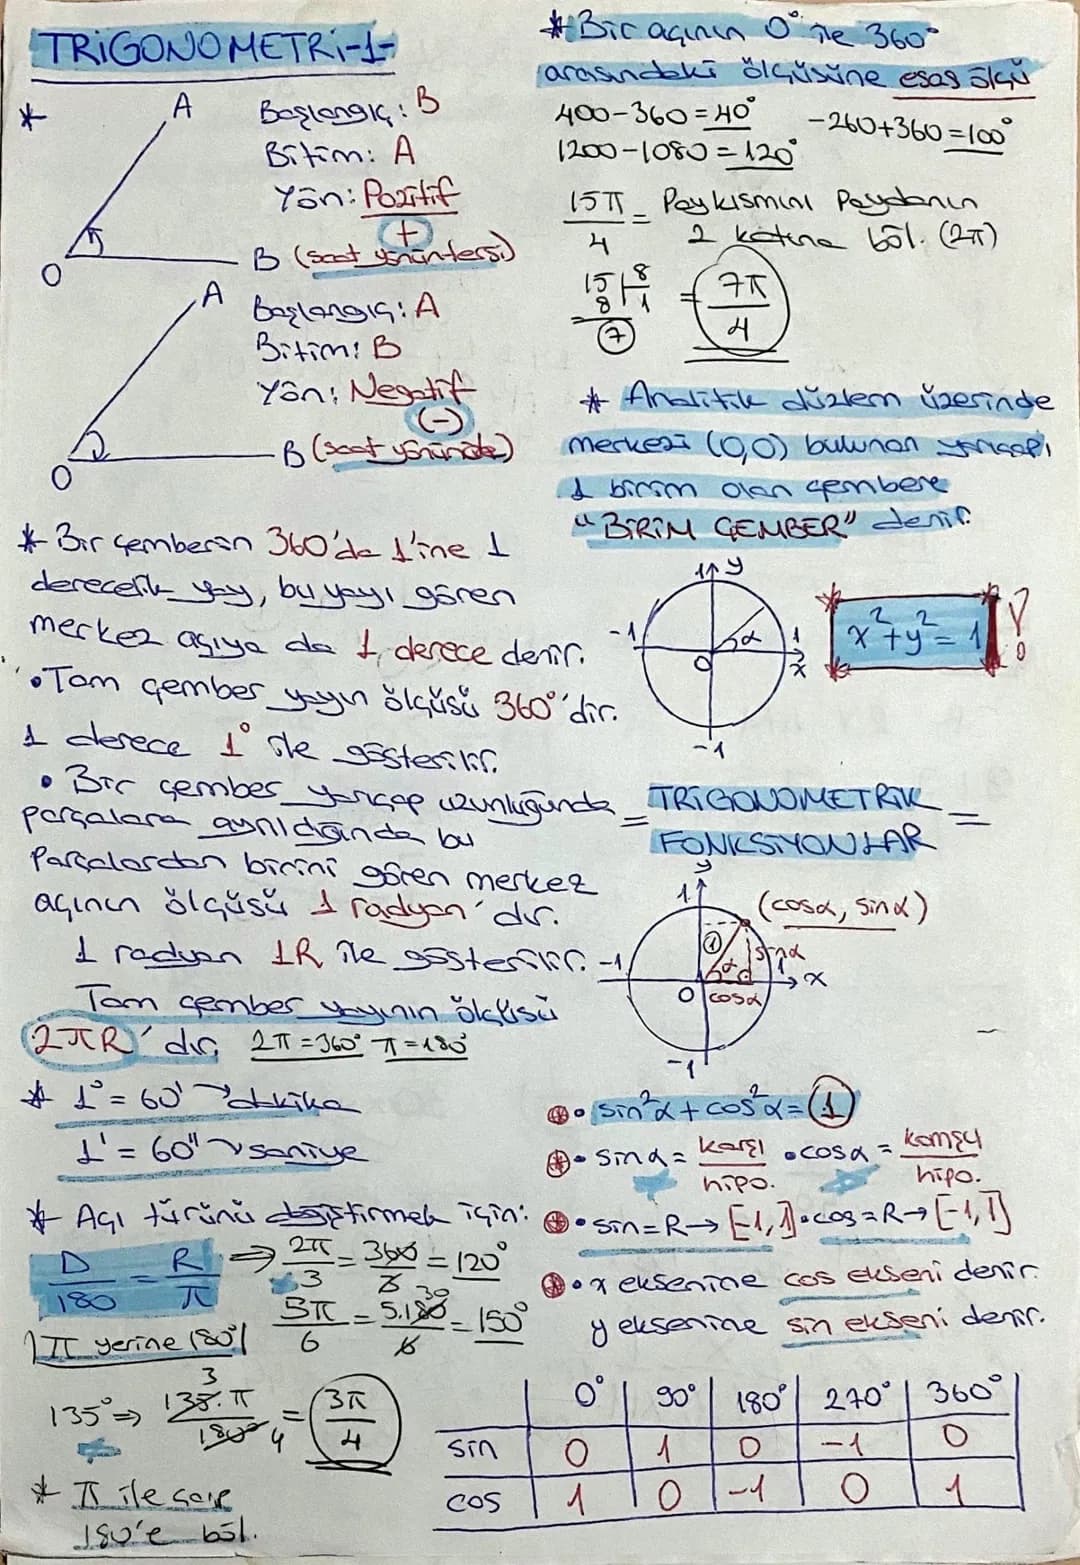 TRİGONOMETRİ-1-
*
A
Başlangıç: B
Bitim: A
Yön: Pozitif
+
O
B (saat yönün tersi)
A
Başlangıç: A
Bitim: B
Yön: Negatif
(-)
O
B (saat yönünde)
* Bir çemberin 360'da 1'ine 1
derecelik yay, bu yayı gören
merkez açıya da 1 derece denir.
• Tam çember yayın ölçüsü 360°'dir.
1 derece 1° ile gösterilir.
• Bir çember yarıçap uzunluğunda
parçalara ayrıldığında bu
parçalardan birini gören merkez
açının ölçüsü 1 radyan'dır.
1 radyan 1R ile gösterilir.
Tam çember yayının ölçüsü
2πR'dir. 2π=360° π=180°
* 1°=60' → dakika
1'=60" → saniye
* Açı türünü değiştirmek için:
D/180 = R/π ⇒ 2π/3 = 360/3 = 120°
π yerine 180°
5π/6 = 5.180/6 = 150°
30
135° ⇒ 135.π/180 = 3π/4
3
4
* π ile çarp
180'e böl.
* Bir açının 0° ile 360°
arasındaki ölçüsüne esas ölçü
400-360=40°
-260+360=100°
1200-1080=120°
15π/4 = Pay kısmını Paydanın
2 katına böl. (2π)
15 | 8
8 | 1
7
= 7π/4
* Analitik düzlem üzerinde
merkezi (0,0) bulunan yarıçapı
1 birim olan çembere
"BİRİM ÇEMBER" denir.
1 y
-1 O α 1 x
-1
x²+y²=1 !
= TRİGONOMETRİK =
FONKSİYONLAR
y
1
(cosα, sinα)
1 sinα
-1 α 1 x
O cosα
-1
• sin²α+cos²α=1
• sinα = karşı/hipo. • cosα = komşu/hipo.
• sin=R→[-1,1] • cos=R→[-1,1]
• x eksenine cos ekseni denir.
y eksenine sin ekseni denir.
0° 90° 180° 270° 360°
sin 0 1 0 -1 0
cos 1 0 -1 0 1